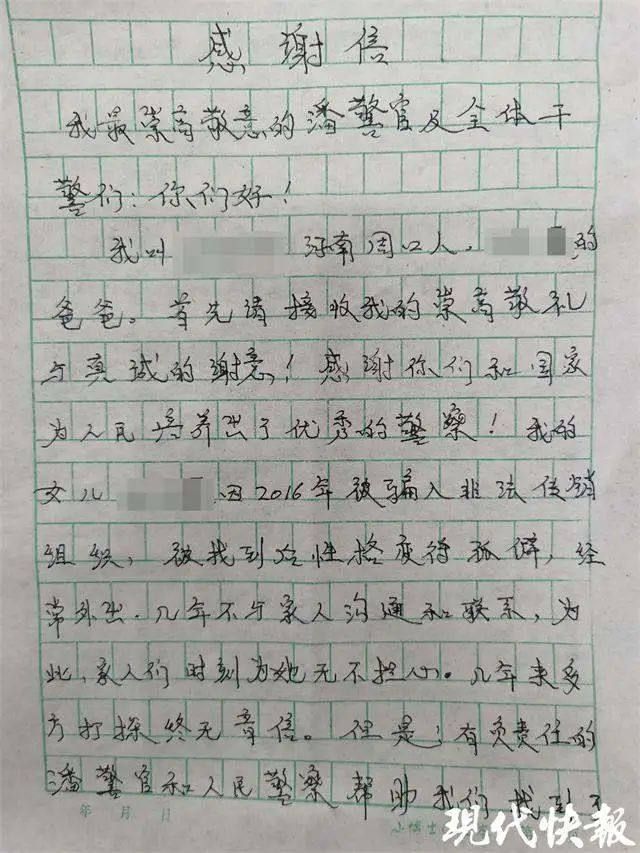 感谢信
我最崇高敬意的潘警官及全体干
警们：你们好！
我叫 河南周口人. 的
爸爸。首先请接收我的崇高敬礼
与真诚的谢意！感谢你们和国家
为人民培养出了优秀的警察！我的
女儿 因2016年被骗入非法传销
组织，被找到后性格变得孤僻，经
常外出.几年不与家人沟通和联系，为
此，家人们时刻为她无不担心。几年来多
方打探终无音信。但是！有负责任的
潘警官和人民警察帮助我们找到了
年 月 日
现代快报